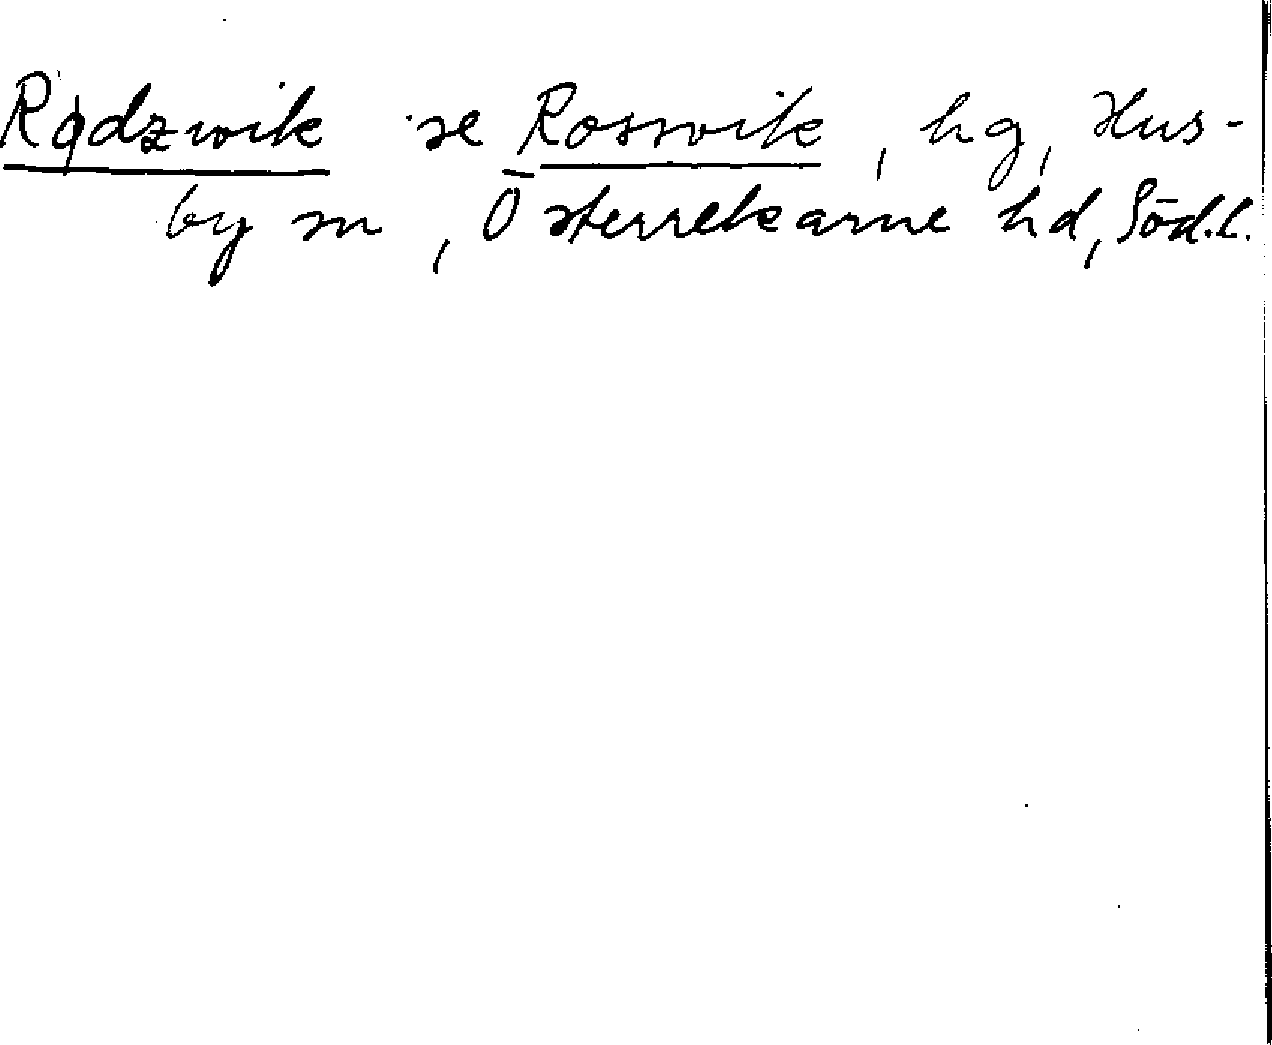 Rødzwik se Rossvik, hg, Hus-
by sn, Österrekarne hd, Söd.l.